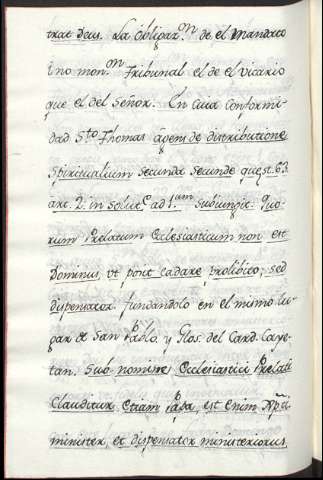 trae Deus. La Obligaz.on de el Mandato
i no mon.on Tribunal el de el vicario
que el del Señor. En cuia Conformi-
dad S.to Thomas agens de distributione
Spiritualium Secunda Secunde quest. 63.
art. 2. in solut.e ad 1.um Subiungit: Quo-
rum Prelatum Ecclesiasticum non est
Dominus, ut pout cadare prolibito; sed
dispensator. fundandolo en el mismo lu-
gar de San Pablo, y Glos. del Card. Caye-
tan. Sub nomine Ecclesiastici Prelati
Clauditur Etiam Papa, est enim
minister, et dispensator ministeriorus.